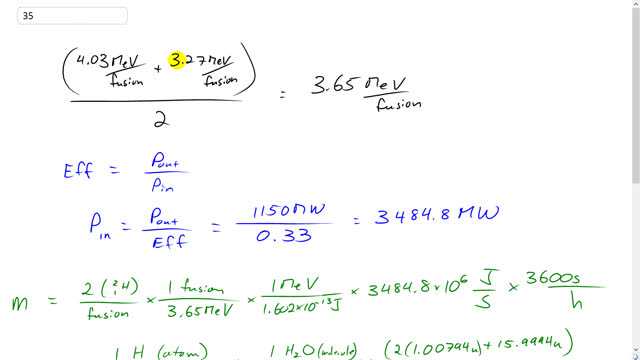 35
(4.03 MeV/fusion + 3.27 MeV/fusion) / 2 = 3.65 MeV/fusion
Eff = Pout/Pin
Pin = Pout/Eff = 1150MW/0.33 = 3484.8 MW
m = 2(²₁H)/fusion × 1 fusion/3.65MeV × 1MeV/1.602×10⁻¹³J × 3484.8×10⁶ J/s × 3600s/h
1 H (atom) 1 H₂O (molecule) (2(1.00794u) + 15.9994u)